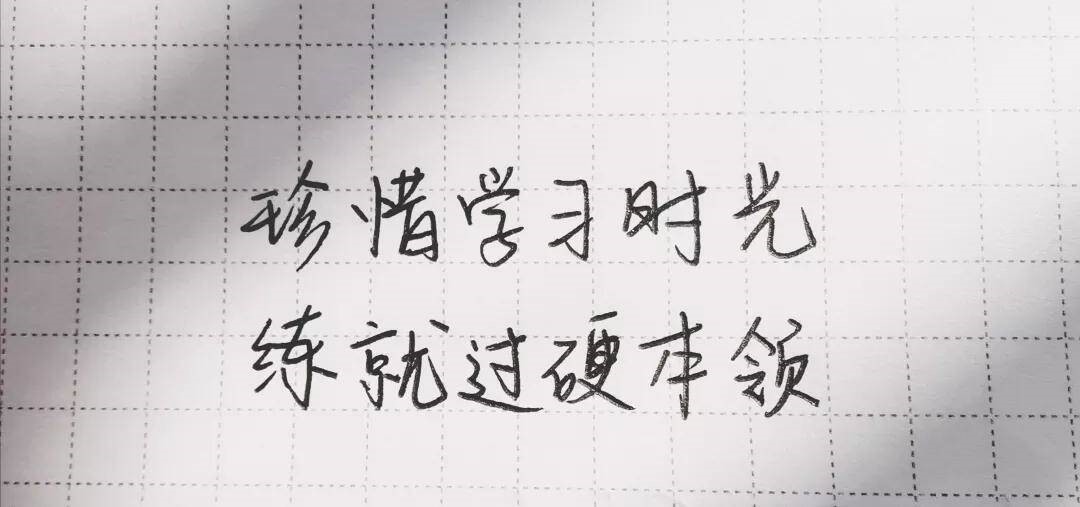 珍惜学习时光
练就过硬本领